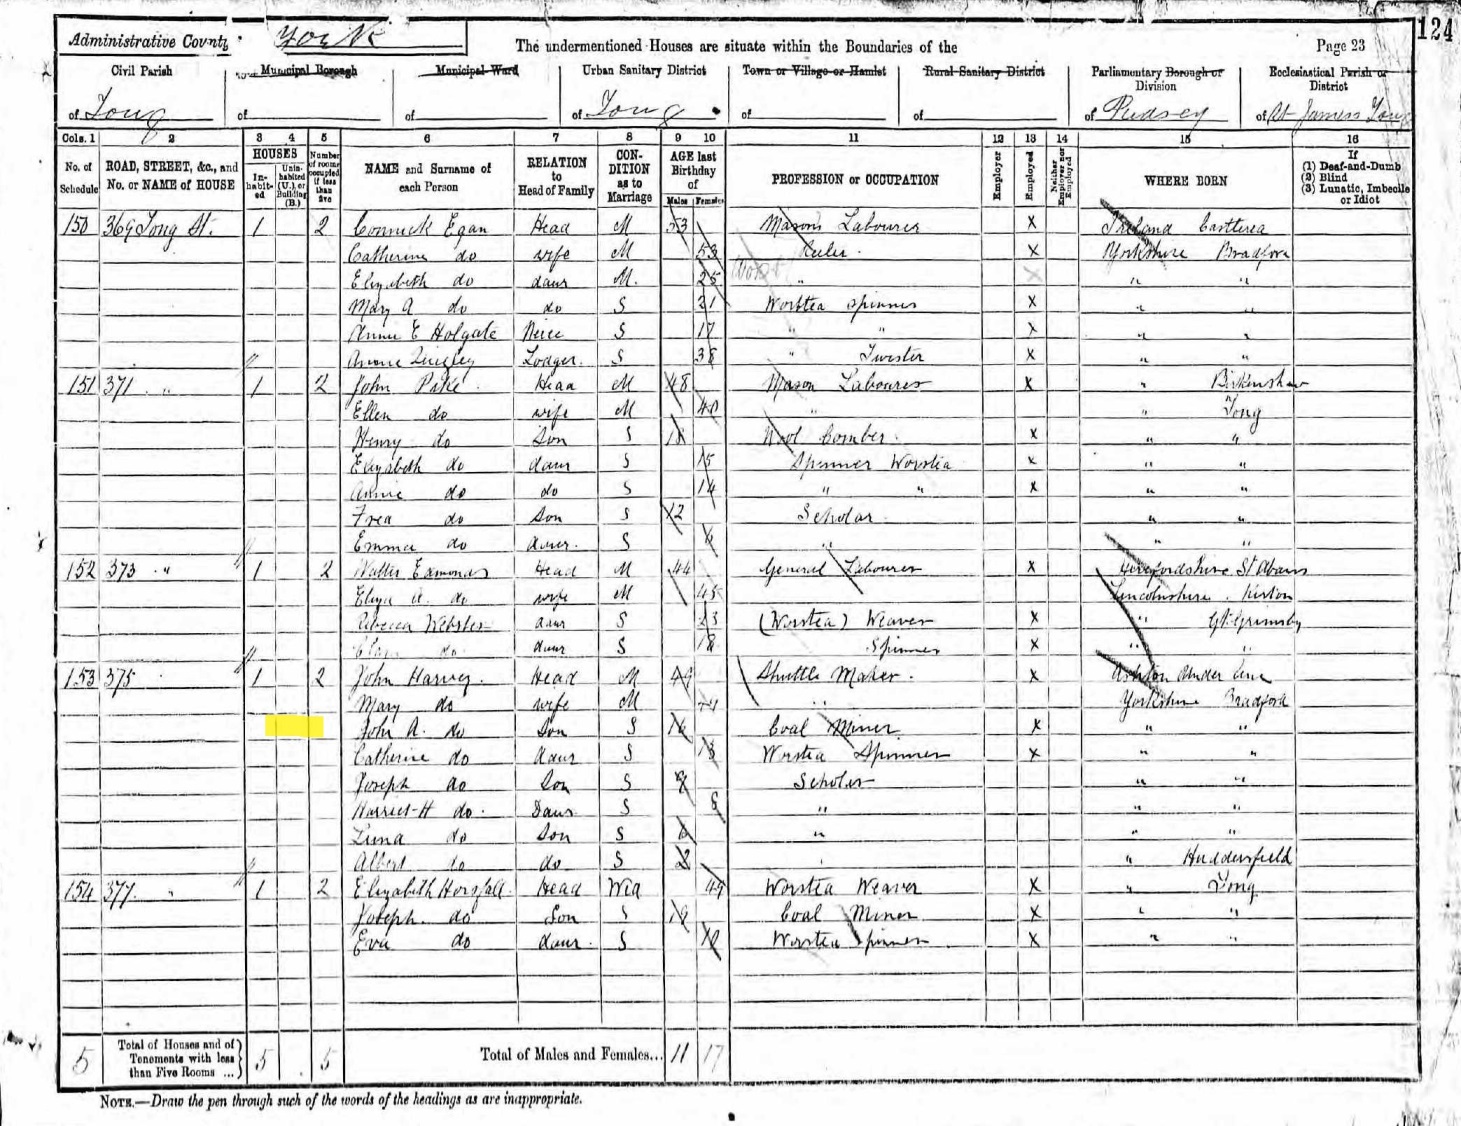 124
Administrative County York
The undermentioned Houses are situate within the Boundaries of the
Page 23
Civil Parish of Tong
Municipal Borough of
Municipal Ward of
Urban Sanitary District of Tong
Town or Village or Hamlet of
Rural Sanitary District of
Parliamentary Borough or Division of Pudsey
Ecclesiastical Parish or District of St James Tong
Cols. 1 2 3 4 5 6 7 8 9 10 11 12 13 14 15 16
No. of Schedule
ROAD, STREET, &c., and No. or NAME of HOUSE
HOUSES
Inhabited
Uninhabited (U.), or Building (B.)
Number of rooms occupied if less than five
NAME and Surname of each Person
RELATION to Head of Family
CONDITION as to Marriage
AGE last Birthday of
Males Females
PROFESSION or OCCUPATION
Employer
Employed
Neither Employer nor Employed
WHERE BORN
If
(1) Deaf-and-Dumb
(2) Blind
(3) Lunatic, Imbecile or Idiot
150 369 Tong St. 1 2 Egan Head M 53 Masons Labourer X Ireland Castlerea
Catherine do wife M 53 Reeler X Yorkshire Bradford
Elizabeth do daur M. 25 " X " "
Mary A do do S 21 Worsted Spinner X " "
Annie E Holgate Neice S 17 " " X " "
Annie Quigley Lodger S 38 " Twister X " "
151 371 " 1 2 John Head M 48 Mason Labourer X " Birkenshaw
Ellen do wife M 40 " " Tong
Henry do Son S 18 Wool Comber X " "
Elizabeth do daur S 15 Spinner Worsted X " "
Annie do do S 14 " " X " "
Fred do Son S 12 Scholar " "
Emma do daur. S " " "
152 373 " 1 2 Walter Edmonds Head M 44 General Labourer X St Albans
Eliza A. do wife M 45 Lincolnshire Kirton
Rebecca Webster daur S 23 (Worsted) Weaver X " Gt Grimsby
do daur S 18 Spinner X " "
153 375 1 2 John Harvey Head M 49 Shuttle Maker. X Ashton Under Line
Mary do wife M Yorkshire Bradford
John A. do Son S 16 Coal Miner X " "
Catherine do daur S 13 Worsted Spinner X " "
Joseph do Son S 9 Scholar " "
Harriet H do. Daur S 8 " " "
do Son S 6 " " "
Albert do do S 2 " Huddersfield
154 377 " 1 2 Elizabeth Horsfall Head Wid 49 Worsted Weaver X " Tong
Joseph. do Son S 19 Coal Miner X " "
Eva do daur. S Worsted Spinner X " "
5 Total of Houses and of Tenements with less than Five Rooms ... 5 5 Total of Males and Females... 11 17
NOTE.—Draw the pen through such of the words of the headings as are inappropriate.